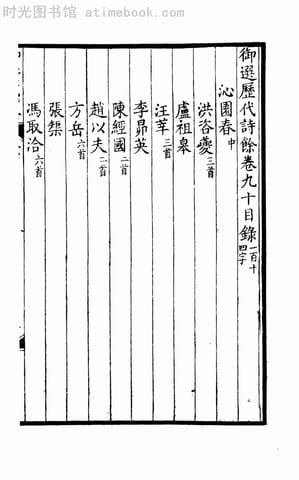 时光图书馆 - atimebook.com
御選歷代詩餘卷九十目錄一百十四字
沁園春中
洪咨夔三首
盧祖皋
汪莘三首
李昴英
陳經國二首
趙以夫二首
方岳六首
張榘
馮取洽六首